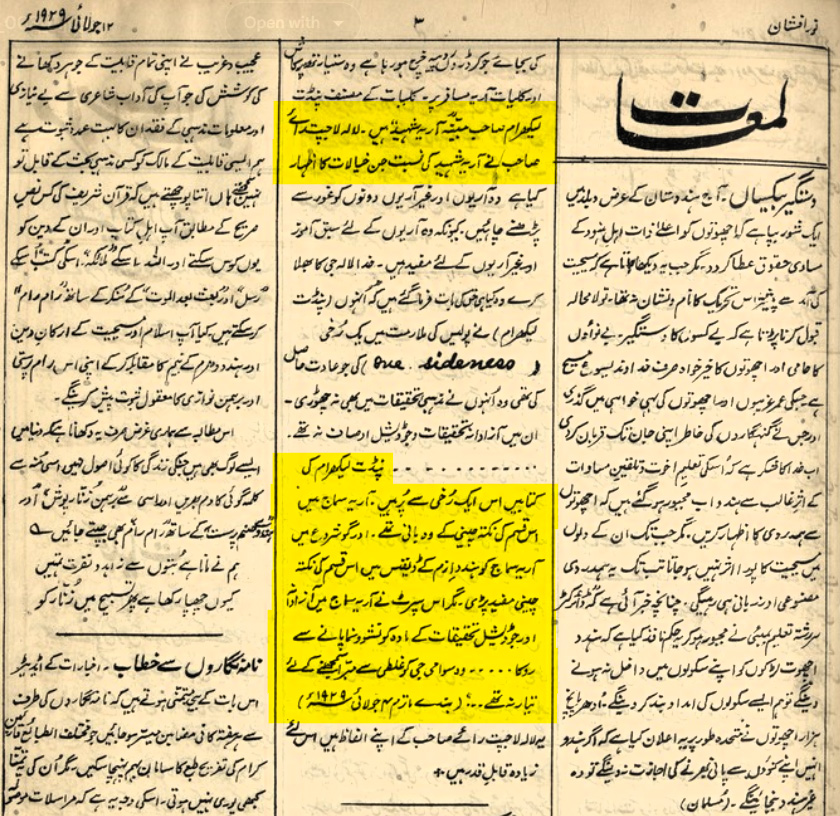 نور افشاں
۳
۱۲ جولائی ۱۹۲۹ء
لمعات
دستگیر بیکساں۔ آج ہندوستان کے عرض و بلد میں
ایک شور بپا ہے کہ اچھوتوں کو اعلےٰ ذات اہل ہنود کے
مساوی حقوق عطا کردو۔ مگر جب یہ دیکھا جاتا ہے کہ مسیحیت
کی آمد سے پیشتر اس تحریک کا نام و نشان نہ تھا۔ تو لا محالہ
قبول کرنا پڑتا ہے کہ بے کسوں کا دستگیر۔ بے نواؤں
کا حامی اور اچھوتوں کا خیر خواہ صرف خداوند یسوع مسیح
ہے جسکی عمر غریبوں اور اچھوتوں کی ہی خواہی میں گذری
اور جس نے گنہگاروں کی خاطر اپنی جان تک قربان کردی
اب خدا کا شکر ہے کہ اسکی تعلیم اخوت و تلقین مساوات
کے اثر غالب سے ہندو اب مجبور ہو گئے ہیں کہ اچھوتوں
سے ہمدردی کا اظہار کریں۔ مگر جب تک ان کے دلوں
میں مسیحیت کا پورا اثر نہیں ہو جاتا تب تک یہ ہمدردی
مصنوعی اور زبانی ہی رہیگی۔ چنانچہ خبر آئی ہے کہ ڈائرکٹر
سررشتہ تعلیم بمبئی نے مجبور ہو کر یہ حکم نافذ کیا ہے کہ ہندو
اچھوت لڑکوں کو اپنے سکولوں میں داخل نہ ہونے
دینگے تو ہم ایسے سکولوں کی امداد بند کر دینگے۔ ادھر پانچ
ہزار اچھوتوں نے متحدہ طور پر یہ اعلان کیا ہے کہ اگر ہندو
انہیں اپنے کنوؤں سے پانی بھرنے کی اجازت نہ دینگے تو وہ
غیر ہندو بنجائینگے۔ (مسلمان)
کی بجائے جو کروڑوں روپیہ خرچ ہو رہا ہے وہ ستیارتھ پرکاش
اور کلیات آریہ مسافر پر۔ کلیات کے مصنف پنڈت
لیکھرام صاحب آریہ شہید ہیں۔ لالہ لاجپت رائے
صاحب نے آریہ شہید کی نسبت جن خیالات کا اظہار
کیا ہے وہ آریوں اور غیر آریوں دونوں کو غور سے
پڑھنے چاہئیں۔ کیونکہ وہ آریوں کے لئے سبق آموز
اور غیر آریوں کے لئے مفید ہیں۔ خدا لالہ جی کا بھلا
کرے وہ کیا ہی حق کی بات فرما گئے ہیں کہ انہوں (پنڈت
لیکھرام) نے پولیس کی ملازمت میں یک رُخی
(one. sideness) کی جو عادت حاصل
کی تھی وہ انہوں نے مذہبی تحقیقات میں بھی نہ چھوڑی۔
ان میں آزادانہ تحقیقات و جوڈیشل اوصاف نہ تھے۔
۔۔۔۔۔۔۔۔۔۔ پنڈت لیکھرام کی
کتابیں اس ایک رُخی سے پُر ہیں۔ آریہ سماج میں
اس قسم کی نکتہ چینی کے وہ بانی تھے۔ اور گو شروع میں
آریہ سماج کو ہندوازم کے ڈیفنس میں اس قسم کی نکتہ
چینی مفید پڑی۔ مگر اس سپرٹ نے آریہ سماج میں آزادانہ
اور جوڈیشل تحقیقات کے مادہ کو نشوونما پانے سے
روکا۔۔۔۔۔ وہ سوامی جی کو غلطی سے مبرا سمجھنے کے لئے
تیار نہ تھے۔۔" (بندے ماترم ۴ جولائی ۱۹۲۹ء)
یہ لالہ لاجپت رائے صاحب کے اپنے الفاظ ہیں اس لئے
زیادہ قابل قدر ہیں۔
عجیب و غریب نے اپنی تمام قابلیت کے جوہر دکھانے
کی کوشش کی جو آپ کی آداب شاعری سے بے نیازی
اور معلومات مذہبی کے فقدان کا بہت عمدہ ثبوت ہے
ہم ایسی قابلیت کے مالک کو کسی مذہبی بحث کے قابل تو
نہیں سمجھتے ہاں اتنا پوچھتے ہیں کہ قرآن شریف کی کس نص
صریح کے مطابق آپ اہل کتاب اور ان کے دین کو
یوں کوس سکتے اور اللہ اسکے ملائکہ، اسکی کتب اسکے
رسل اور بعث بعد الموت" کے منکر کے ساتھ "رام رام"
کر سکتے ہیں۔ کیا آپ اسلام اور مسیحیت کے ارکان دین
اور ہندو دھرم کے نیم کا مقابلہ کر کے اپنی اس رام پرستی
اور برہمن نوازی کا معقول ثبوت پیش کرینگے۔
اس مطالبہ سے ہماری غرض صرف یہ دکھانا ہے کہ دنیا میں
ایسے لوگ بھی ہیں جنکی زندگی کا کوئی اصول نہیں اسی منہ سے
کلمہ گوئی کا دم بھریں اور اسی سے برہمن زنار پوش اور
کے ساتھ رام رام بھی جپتے جائیں ؎
ہم نے مانا ہے بتوں سے زاہدو نفرت تمہیں
کیوں چھپا رکھا ہے پھر تسبیح میں زنار کو
نامہ نگاروں سے خطاب۔ اخبارات کے ایڈیٹر
اس بات کے ہی متمنی ہوتے ہیں کہ نامہ نگاروں کی طرف
سے ہر ہفتہ کافی مضامین میسر ہو جائیں جو مختلف الطبائع قارئین
کرام کی تفریح طبع کا سامان بہم پہنچا سکیں۔ مگر ان کی یہ تمنا
کبھی پوری نہیں ہوتی۔ اسکی وجہ یہ ہے کہ مراسلات موصولہ